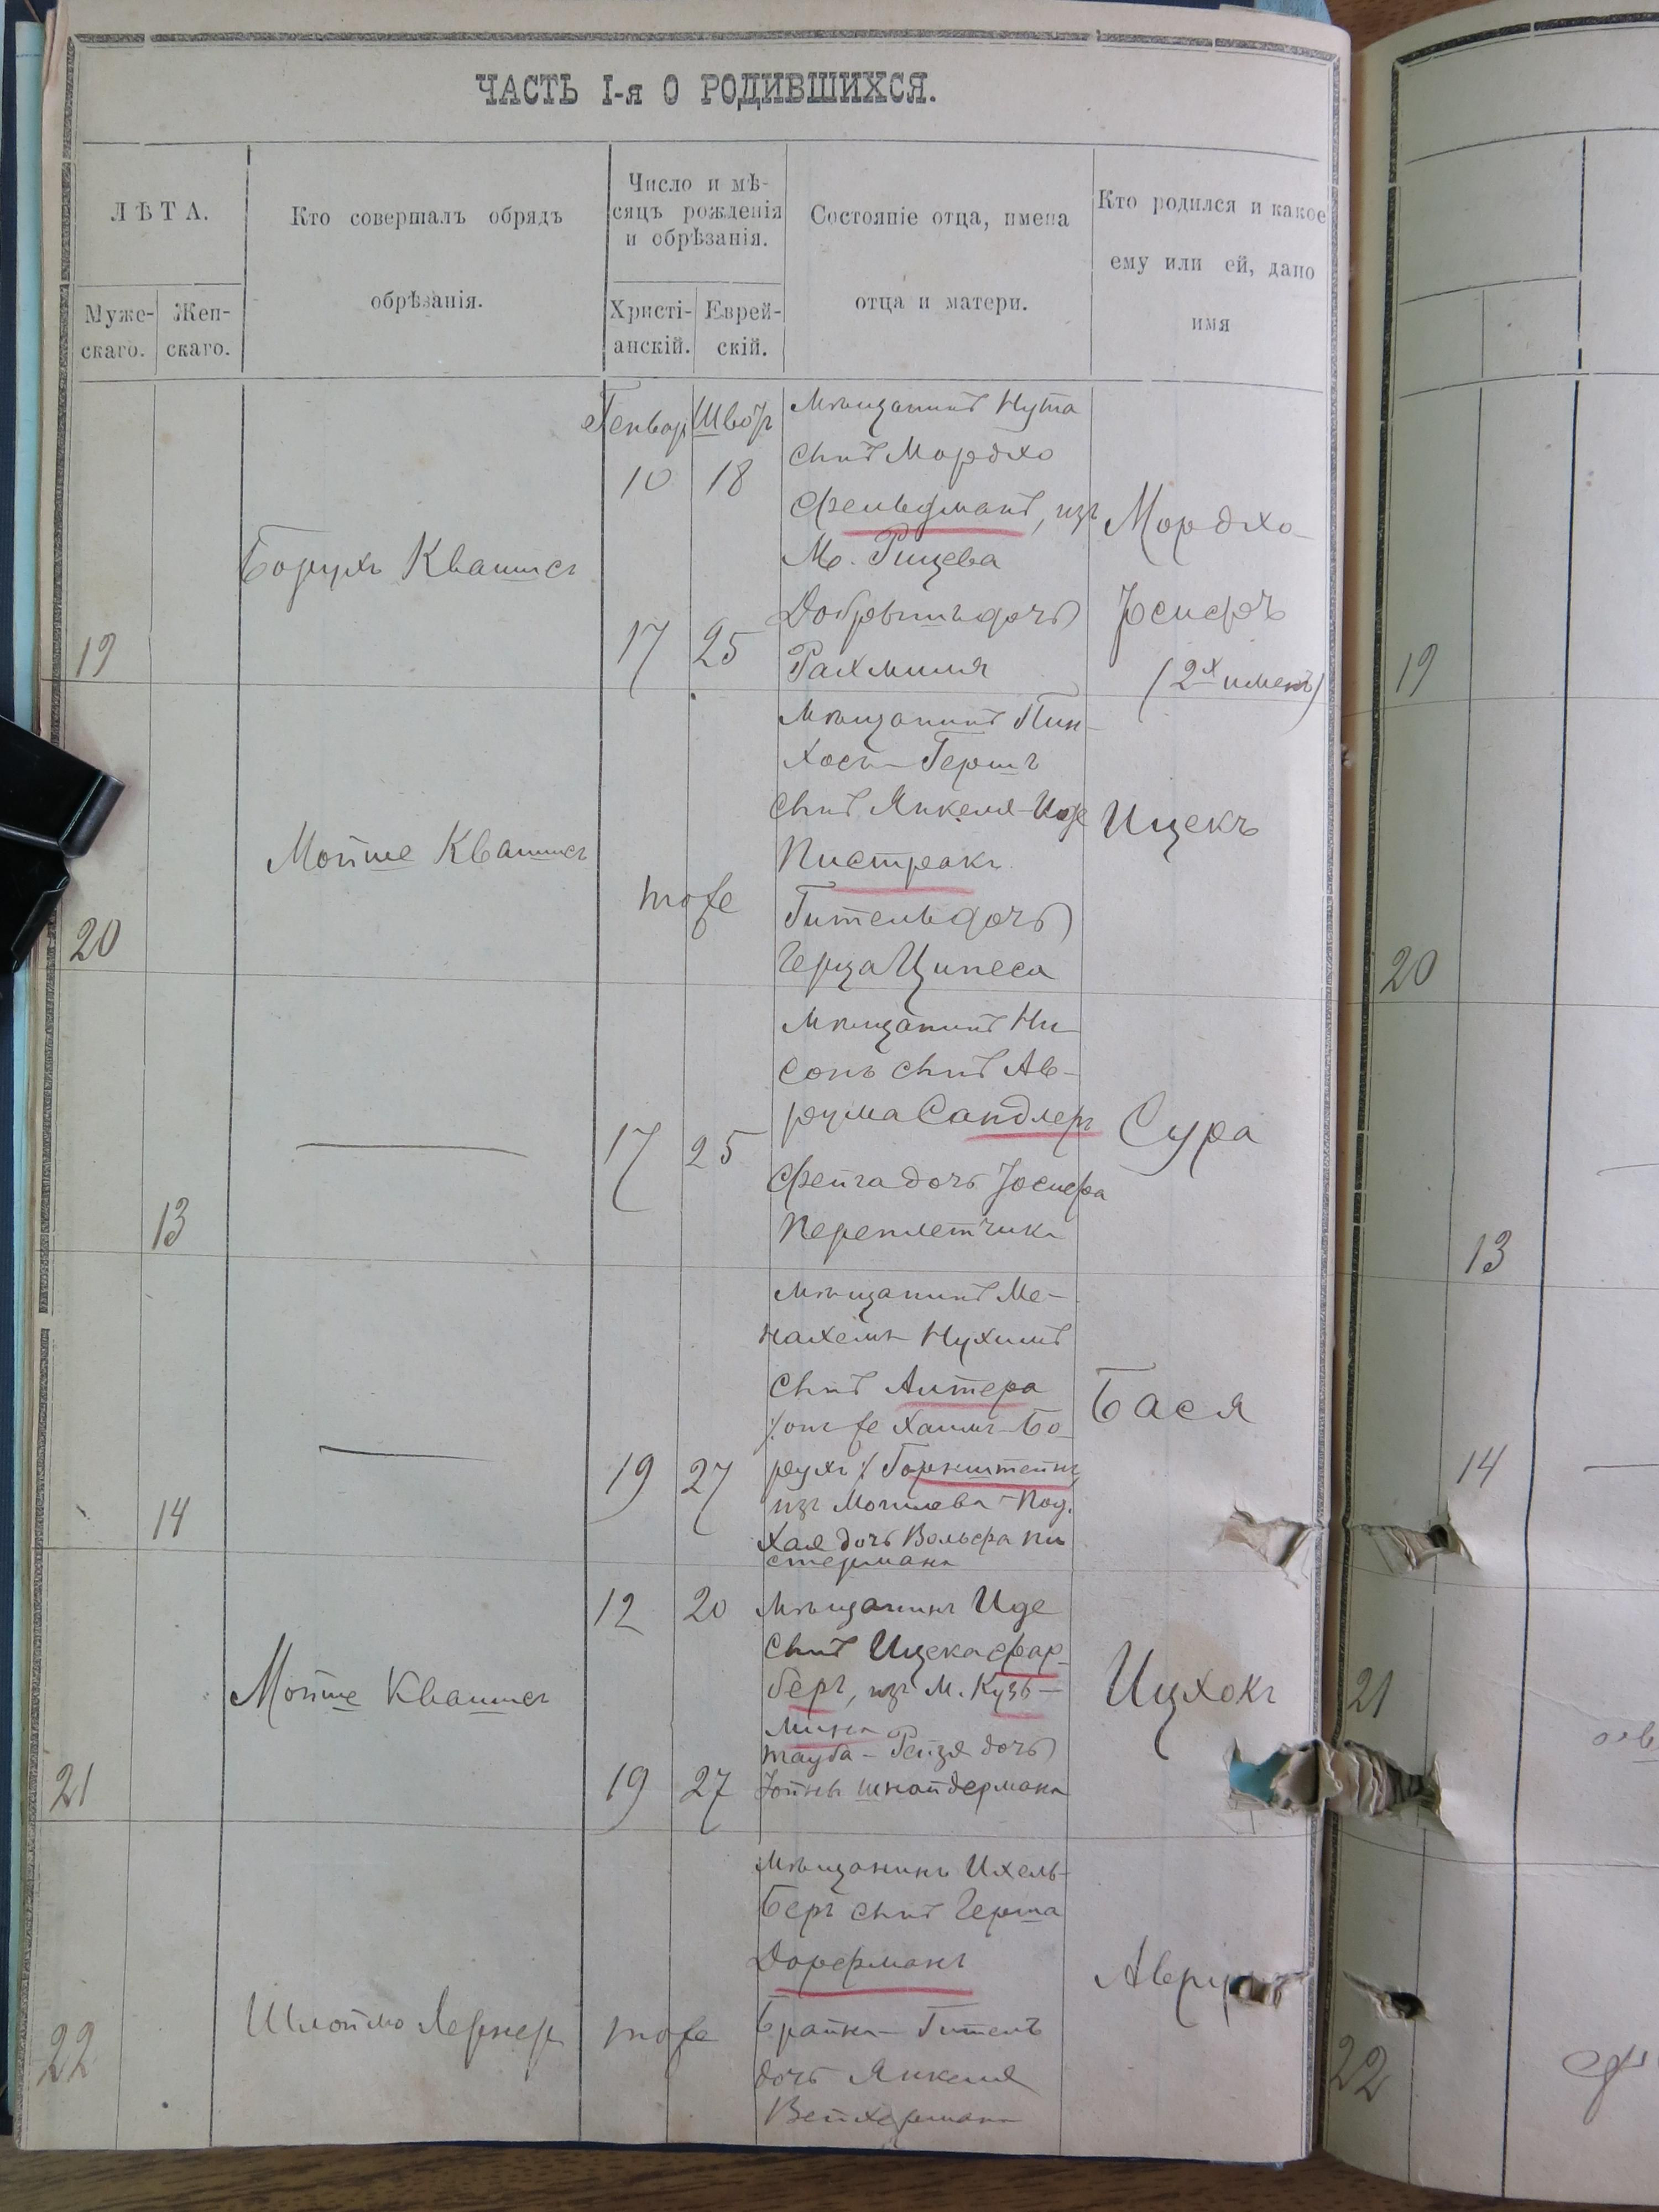 ЧАСТЬ I-я О РОДИВШИХСЯ.
ЛѢТА.
Муже-
скаго.
Жен-
скаго.
Кто совершалъ обрядъ
обрѣзанія.
Число и мѣ-
сяцъ рожденія
и обрѣзанія.
Христі-
анскій.
Еврей-
скій.
Состояніе отца, имена
отца и матери.
Кто родился и какое
ему или ей, дано
имя
19
Борухъ Квашисъ
Генвар
10
17
18
25
Мѣщанинъ Нута
сынъ Мордхо
Фельдманъ, изъ
М.
Добрышъ дочь
Рахмиля
Мордхо-
Іосифъ
(2х именъ)
20
Мойше Квашисъ
тоже
Мѣщанинъ Пин-
хосъ-Гершъ
сынъ Янкеля-Иде
Пистрекъ
Гитель дочь
Герца Ципеса
Ицекъ
13
17
25
Мѣщанинъ Ни-
сонъ сынъ Ав-
рума Сандлеръ
Фейга дочь Іосифа
Переплетчика
Сура
14
19
27
Мѣщанинъ Ме-
нахемъ Нухимъ
сынъ Алтера
/: онъ же Хаимъ-Бо-
рухъ :/ Горнштейнъ,
изъ Могилева-Под.
Хая дочь Вольфа Пи
стермана
Бася
21
Мойше Квашисъ
12
20
19
27
Мѣщанинъ Иде
сынъ Ицека Фар-
беръ, изъ М. Кузь-
мина
Тауба-Рейзя дочь
Іойны Шнайдермана
Ицхокъ
22
Шлоймо Лернеръ
тоже
Мѣщанинъ Ихель-
Беръ сынъ Герша
Дорфманъ
Брайна-Гитель
дочь Янкеля
Вейхермана
19
20
13
14
21
22